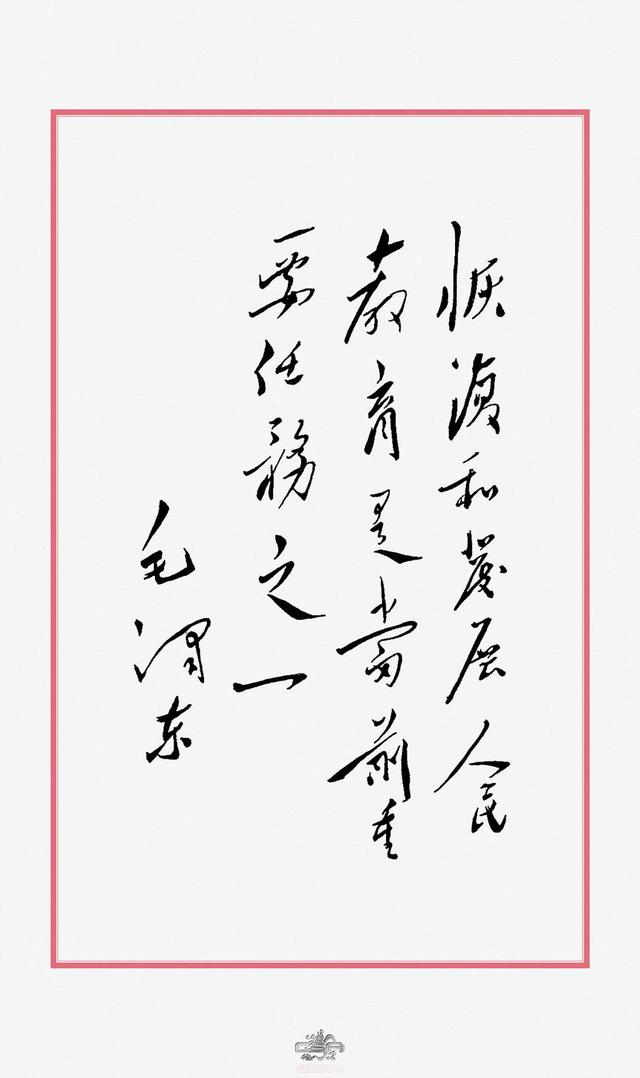 恢復和發展人民
教育是當前重
要任務之一
毛澤东